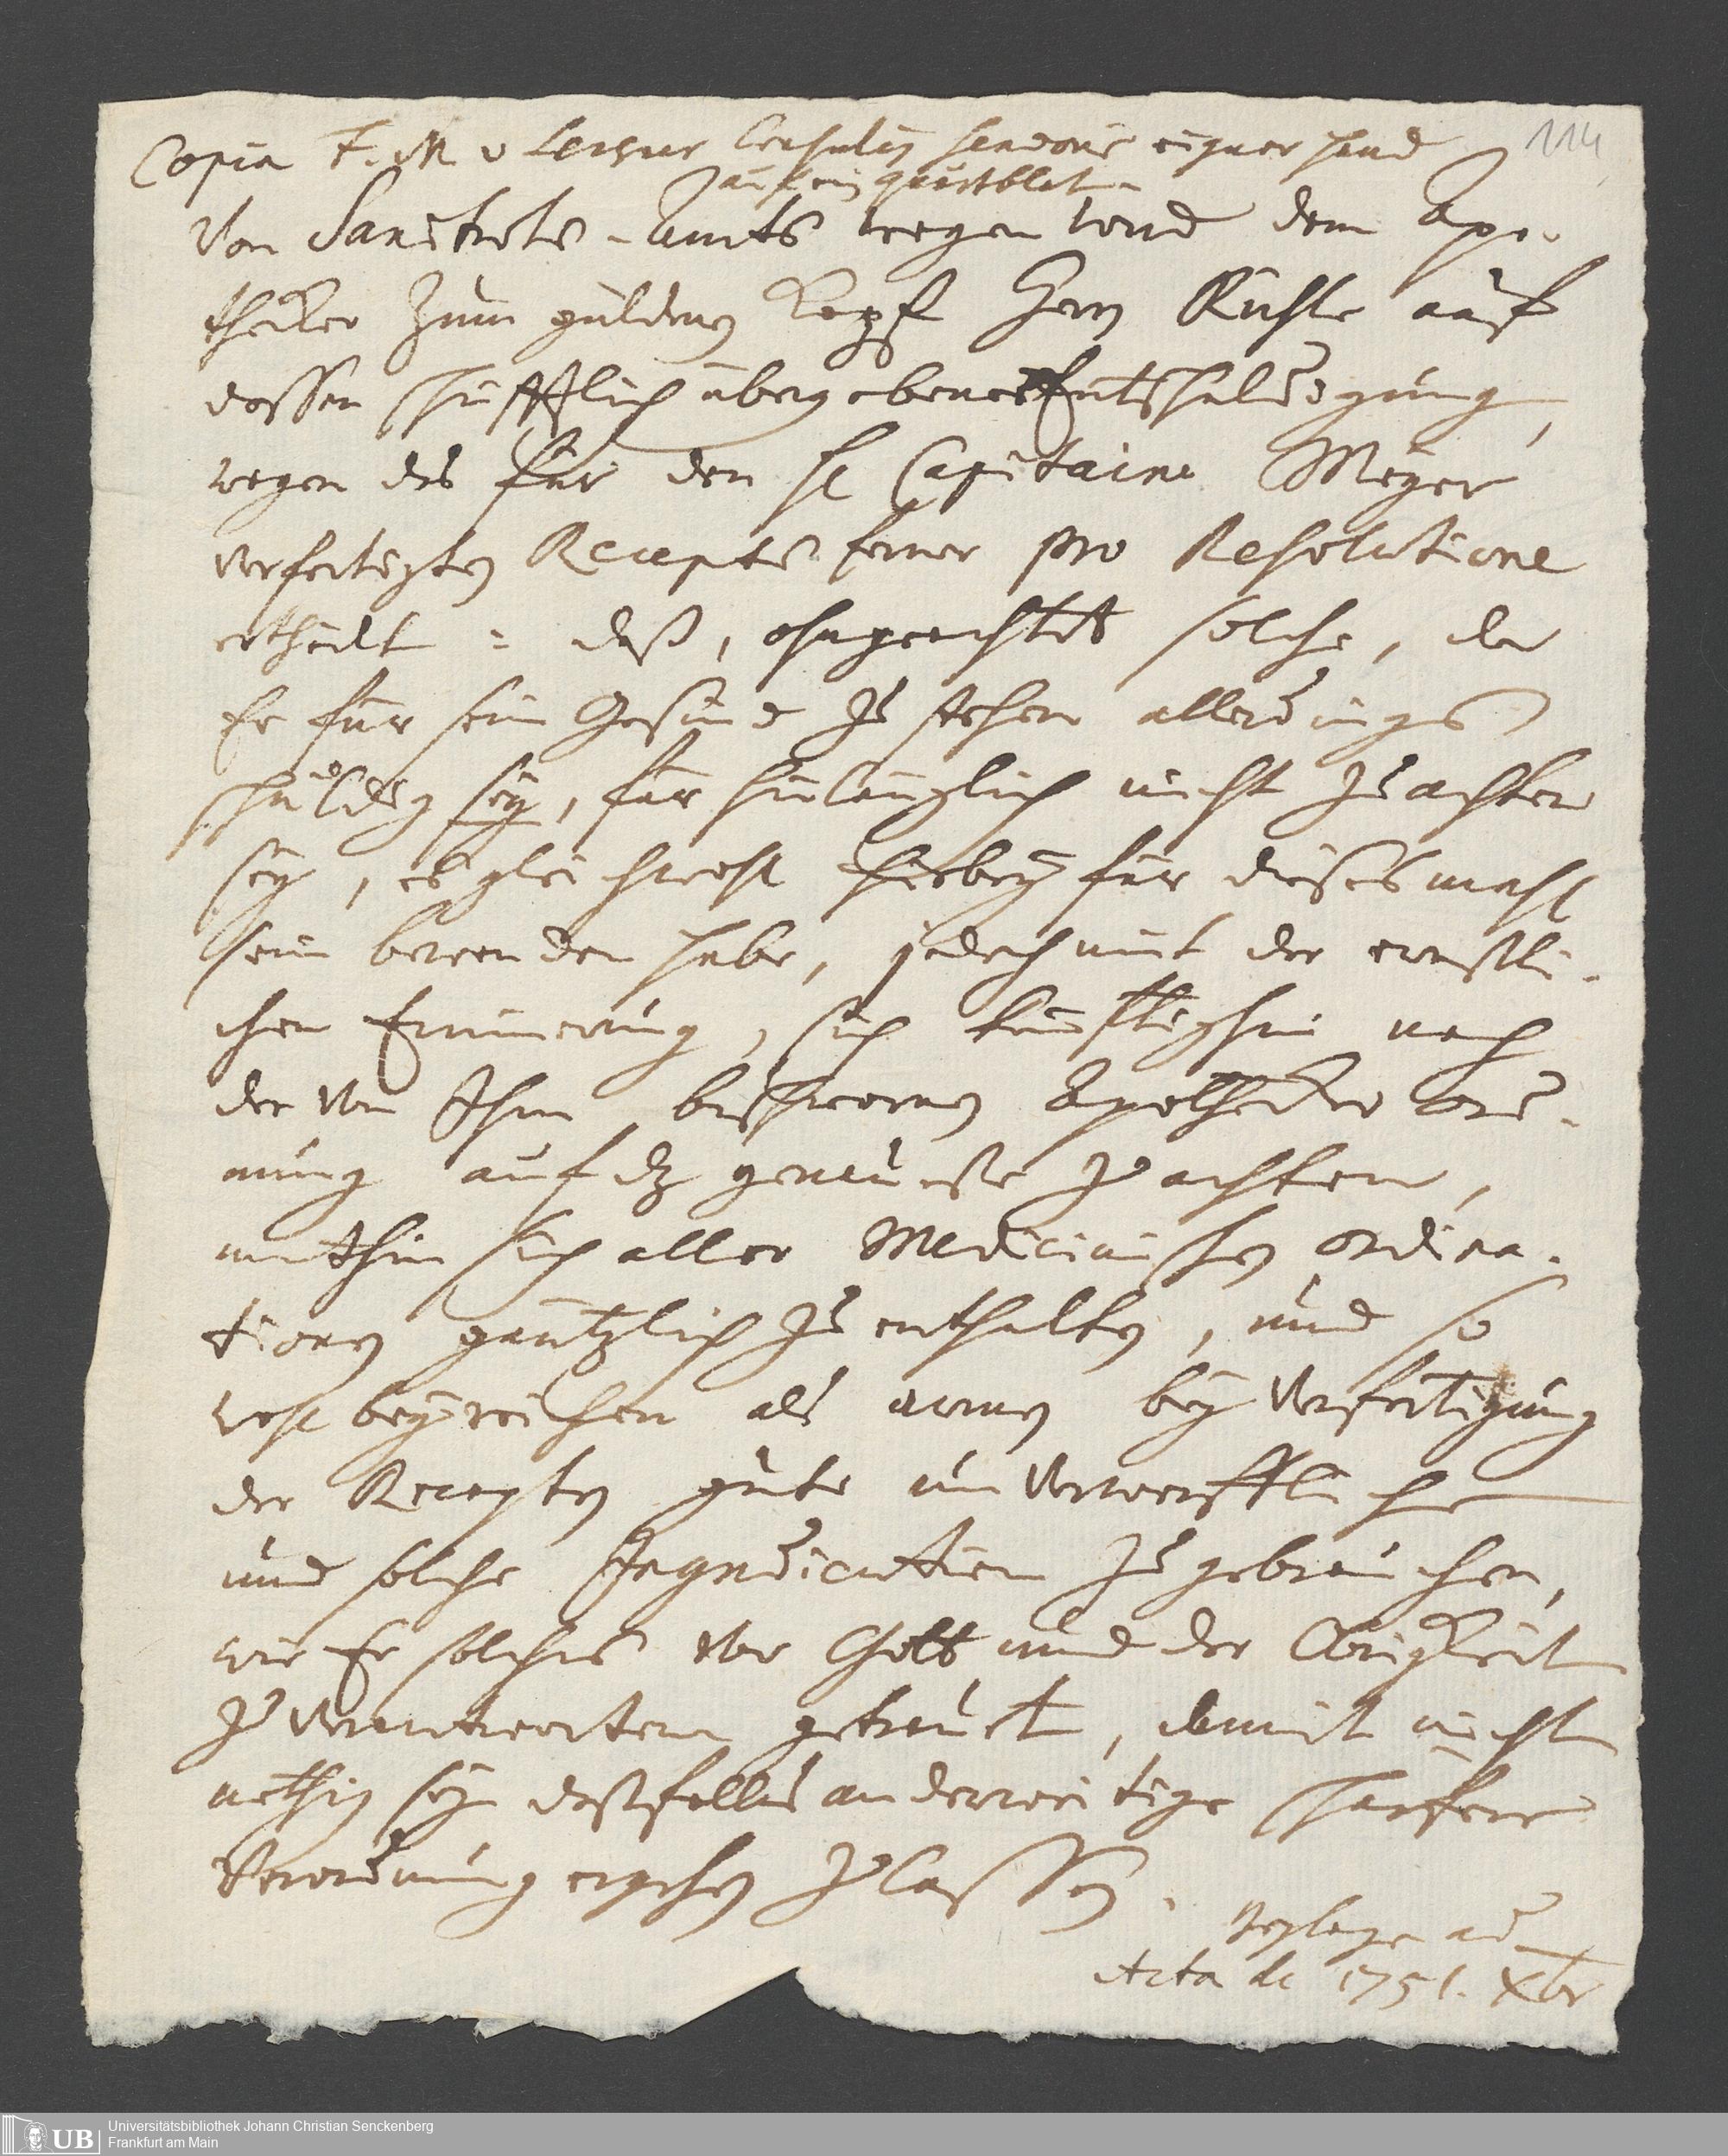 114
Copia F. M. v Lersner Consulis senioris eigner hand
auf ein quartblat.
Von Sanitäts-Amts wegen wird dem Apo-
thecker zum gülden Kopf Herrn Rühle auf
dessen schrifftlich übergebene Entschuldigung,
wegen des für den H Capitaine Meyer
verfertigten Recepts ferner pro Resolutione
ertheilt: daß, ohngeachtet solche, da
Er für sein Gesind zu stehen allerdings
schuldig sey, für hinlänglich nicht zu achten
sey, es gleichwohl hierbey für dießes mahl
sein bewenden habe, jedoch mit der ernstli-
chen Erinnerung, sich künfftighin nach
der von Ihm beschwornen Apothecker ord-
nung auf dz genaueste zu achten,
mithin sich aller Medicinischen ordina-
tionen gäntzlich zu enthalten, und so
wohl bey reichen als armen bey Verfertigung
der Recepten gute unverwerffliche
und solche Ingredientien zu gebrauchen,
wie Er solches vor Gott und der Obrigkeit
zu verantworten getrauet, damit nicht
nöthig sey deßfalls anderweitige scharfere
Verordnung ergehen zu lassen.
Beylage ad
Acta de 1751. Xbr
UB
Universitätsbibliothek Johann Christian Senckenberg
Frankfurt am Main